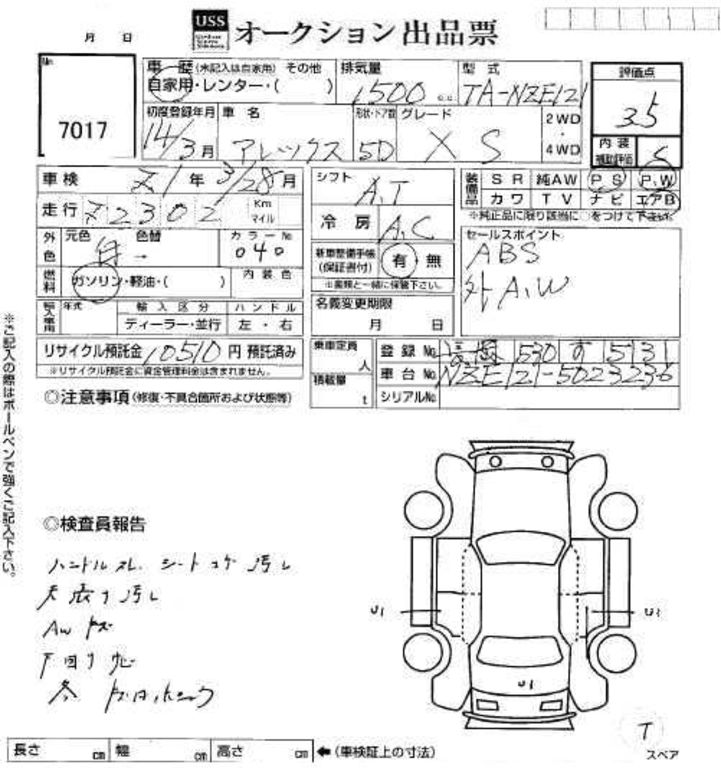 月 日
USS オークション 出品票
No.
7017
車 歴 (未記入は自家用) その他
自家用・レンター・( )
排気量
1500 c.c
型 式
TA-NZE121
評価点
3.5
初度登録年月
14/3月
車 名
アレックス
形状・ドア数
5D
グレード
XS
2WD
・
4WD
内 装
補助評価
車検 Z1年 3/28月
走行 72302 Km マイル
シフト
A.T
冷 房
A.C
装備品
SR 純AW PS P.W
カワ TV ナビ エアB
※純正品に限り該当に○をつけて下さい
外色
元色
白
色替
→
カラーNo
040
燃料
ガソリン・軽油・( )
内装色
新車整備手帳
(保証書付)
有・無
※書類と一緒に保管下さい。
セールスポイント
ABS
外A.W
輸入車用
年式
輸入区分
ディーラー・並行
ハンドル
左・右
名義変更期限
月 日
リサイクル預託金 10510 円 預託済み
※リサイクル預託金に資金管理料金は含まれません。
乗車定員
人
積載量
t
登録No. 530 す 5131
車台No. NZE121-5023236
シリアルNo.
◎注意事項(修復・不具合箇所および状態等)
※ご記入の際はボールペンで強くご記入下さい。
◎検査員報告
ハンドルスレ シートコゲ 汚レ
天張り汚レ
AW キズ
下回り サビ
U1
U2
U1
T
スペア
長さ cm 幅 cm 高さ cm ←(車検証上の寸法)